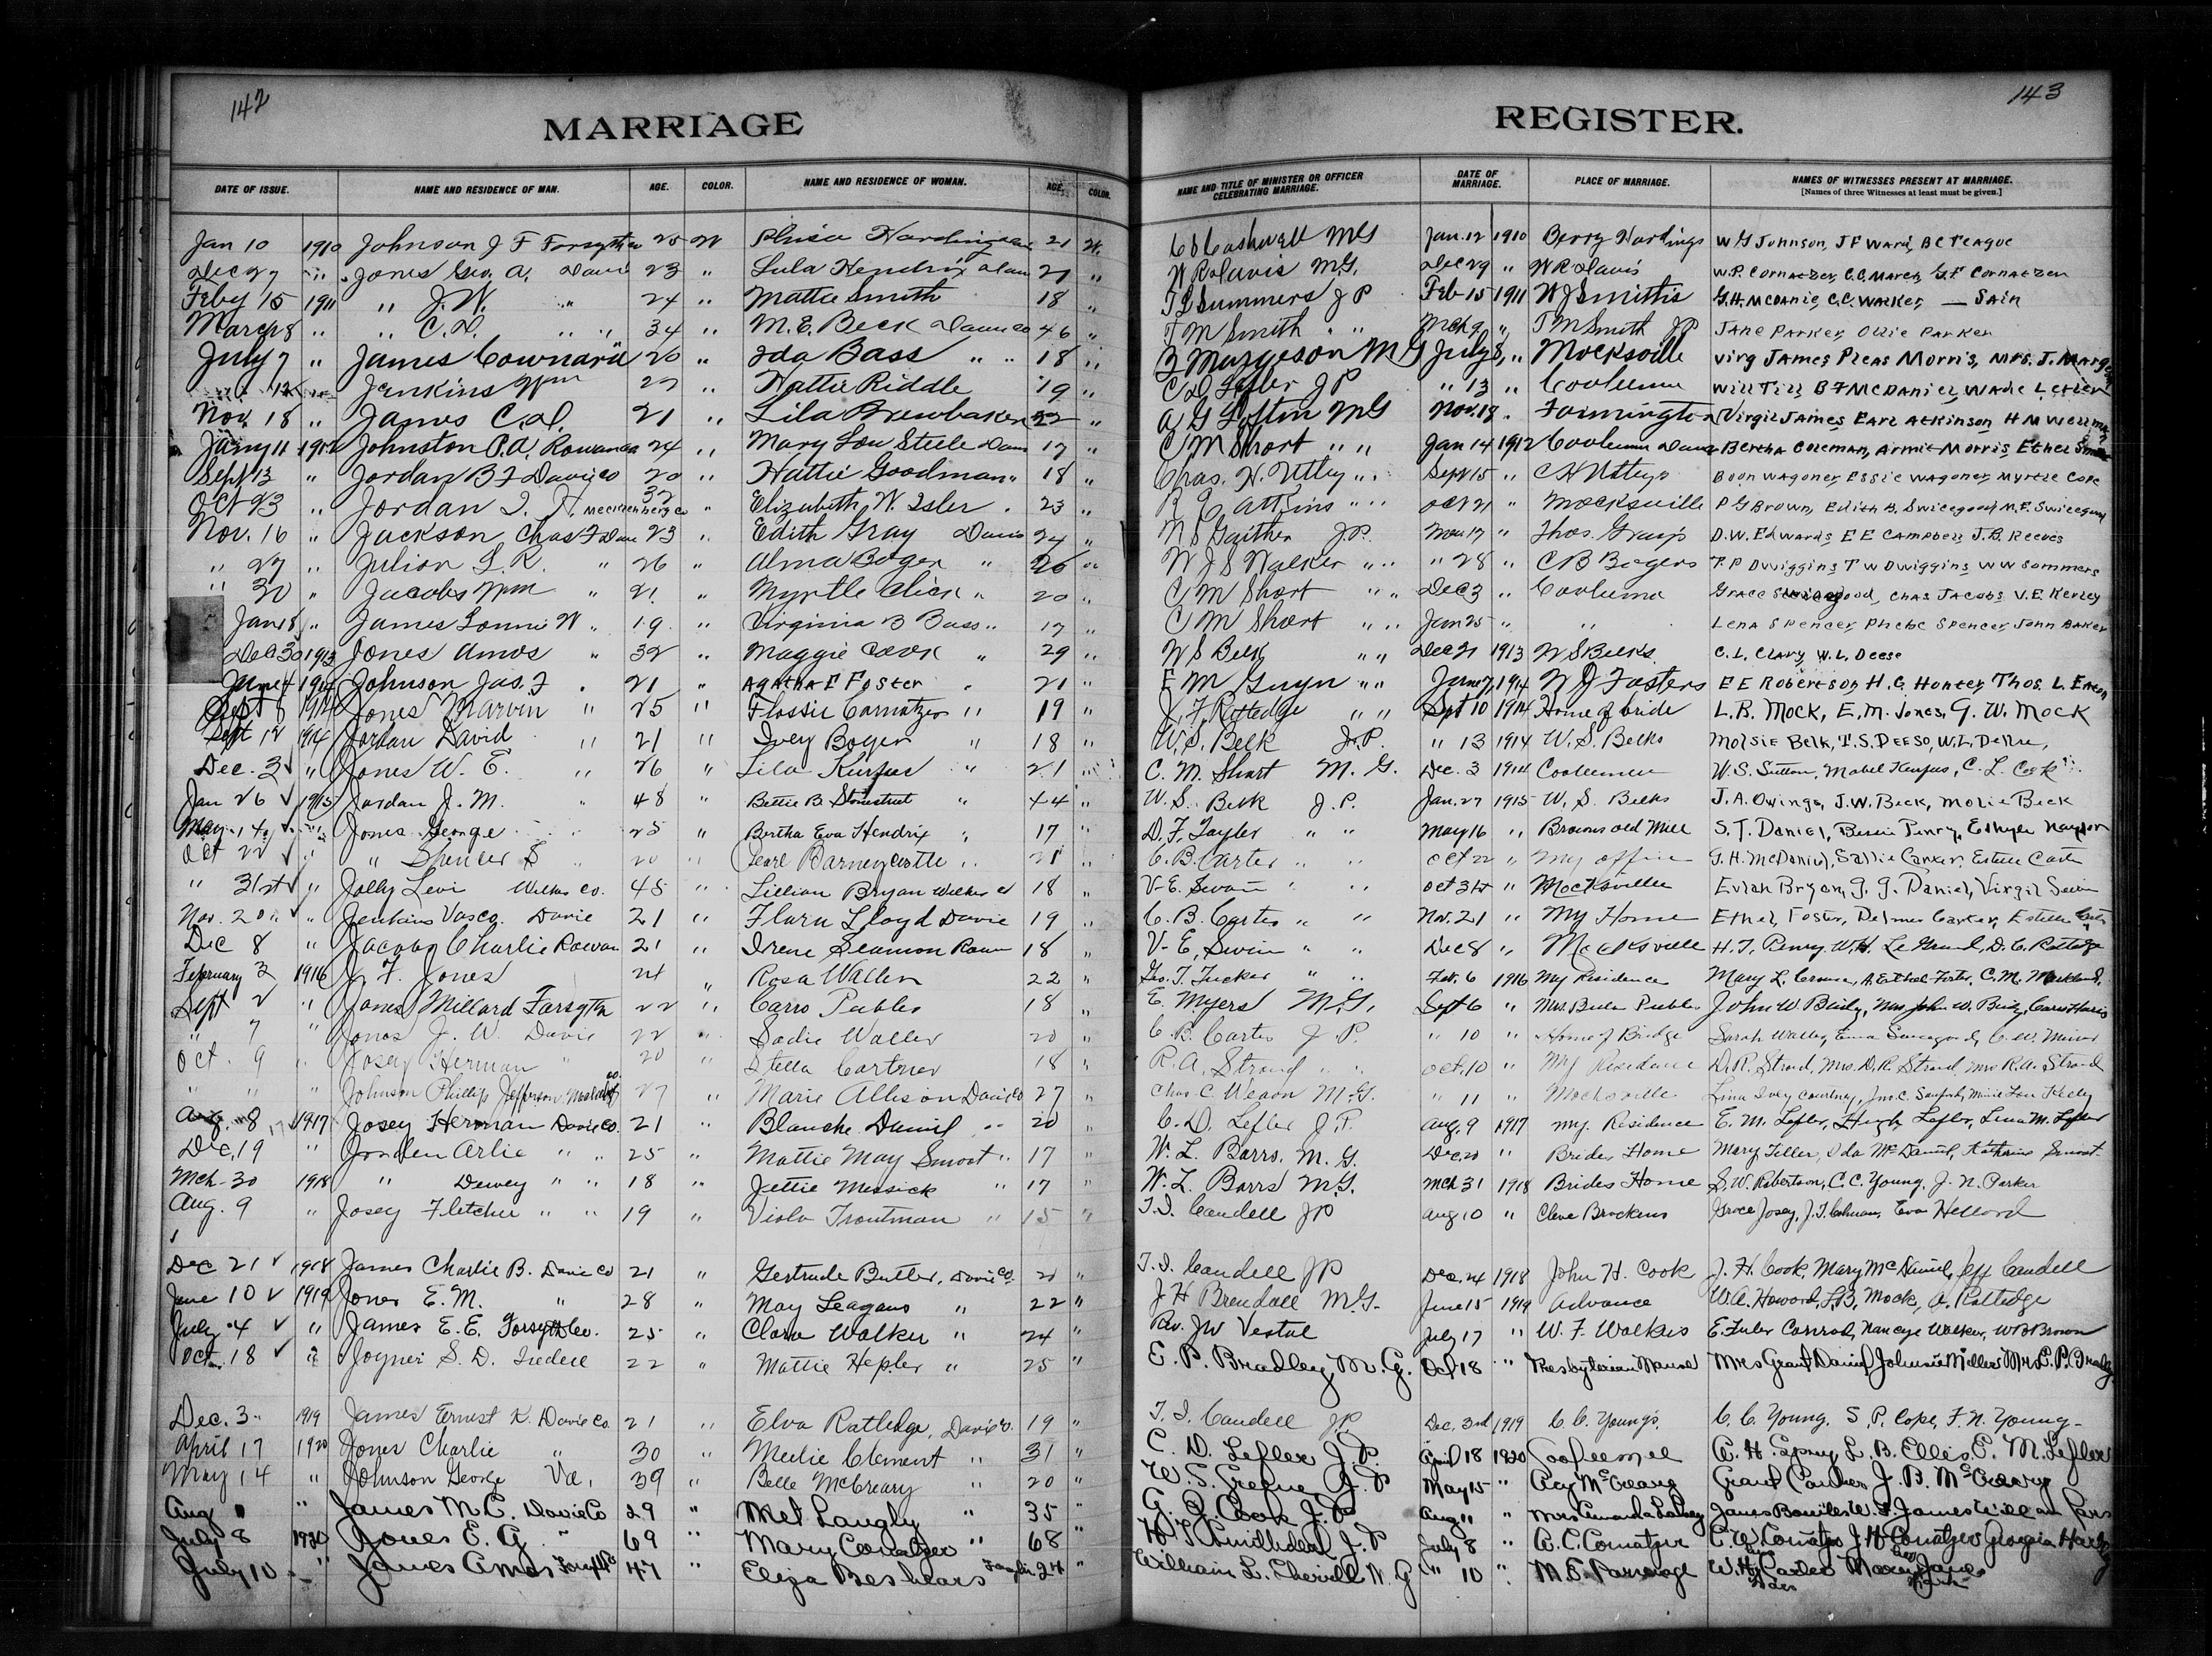 142
143
MARRIAGE REGISTER.
DATE OF ISSUE. NAME AND RESIDENCE OF MAN. AGE. COLOR. NAME AND RESIDENCE OF WOMAN. AGE. COLOR. NAME AND TITLE OF MINISTER OR OFFICER CELEBRATING MARRIAGE. DATE OF MARRIAGE. PLACE OF MARRIAGE. NAMES OF WITNESSES PRESENT AT MARRIAGE.
[Names of three Witnesses at least must be given.]
Jan 10 1910 Johnson J F Forsythe 25 W 21 W. MG Jan. 12 1910 Berry Hardings W G Johnson, J F Ward, B C Teague
Dec 27 " Jones Geo. A. Davie 23 " Lula Hendrix Davie 21 " W R Davis M.G. Dec 29 " W R Davis W.P. Cornatzer, C.C. March, G.F Cornatzer
Feby 15 1911 " J. W. " 24 " Mattie Smith 18 " T I Summers J P Feb 15 1911 W J Smiths G.H. McDanie, C.C. Walker, — Sain
March 8 " " C. D. " " 34 " M. E. Beck Davie co 46 " T M Smith " " Mch 9 " T M Smith JP Jane Parker, Ollie Parker
July 7 " James Cownard 20 " Ida Bass " " 18 " Margeson M G July 8, " Mocksville Virg James, Pleas Morris, Mrs. J. Marge
Jenkins Wm 22 " Hattie Riddle 19 " C D Lefler J P " 13 " Cooleemee Will Till, B F McDaniel, Wade Lefler
Nov. 18 " James C. D. 21 " Lila Brewbaker 22 " A G Loftin MG Nov. 18 . Farmington Virgil James Earl Atkinson H M Wellman
Jany 11 1912 Johnston P. A. Rowan co 24 " Mary Lou Steele Davie 17 " C M Short " " Jan 14 1912 Cooleemee Davie Bertha Coleman, Armit Morris, Ethel
Sept 13 " Jordan B F Davie co 20 " Hattie Goodman " 18 " Chas. H. Utley " " Sept 15 " C H Utleys Boon Wagoner Essie Wagoner Myrtle Cope
Oct 23 " Jordan J. H. Mecklenberg co 32 " Elizabeth N. Isler . 23 " R E Atkins " " Oct 21 " Mocksville P G Brown, Edith B. Swicegood, M.F. Swicegood
Nov. 16 " Jackson, Chas F Davie 23 " Edith Gray Davie 24 " M S Gaither J.P. Nov. 17 " Thos. Grays D.W. Edwards E E Campbell J.B. Reeves
" 27 " Julian L. R. " 26 " Alma Boger " 26 " W J S Walker " " " 28 " C B Bogers F P Dwiggins T W Dwiggins W W Sommers
" 30 " Jacobs Wm " 21. " Myrtle Click " 20 " C M Short " " Dec 3 " Cooleemee Grace Swicegood, Chas Jacobs V. E. Kerley
Jan 18 " James Lonnie W " 19 " Virginia B Bass " 17 " C M Short " " Jan 25 " " Lena Spencer, Phebe Spencer, John Baker
Dec 20 1913 Jones Amos " 32 " Maggie Cook " 29 " W S Belk " " Dec 21 1913 W S Belks C. L. Clary W. L. Deese
June 4 1914 Johnson Jas. F . 21 " Agatha E Foster . 21 " E M Guyn " " June 7, 1914 W J Fosters E E Robertson, H. G. Hunter, Thos. L. Eaton
Sept 8 1914 Jones Marvin " 25 " Flossie Cornatzer " 19 " J. F. Ratledge " " Sept 10 1914 Home of bride L. B. Mock, E. M. Jones, G. W. Mock
Sept 12 1914 Jordan David " 21 " Ivey Boger " 18 " W. S. Belk J. P. " 13 1914 W. S. Belks Molsie Belk, T. S. Deeso, W. L.
Dec. 3 " Jones W. E. " 26 " Lila Kurfees " 21 " C. M. Short M. G. Dec. 3 1914 Cooleemee W. S. Sutton, Mabel Kurfees, C. L. Cook
Jan 26 1915 Jordan J. M. " 48 " Bettie B. " 44 " W. S. Belk J. P. Jan. 27 1915 W. S. Belks J. A. Owings, J. W. Beck, Molie Beck
May 14 " Jones George 25 " Bertha Eva Hendrix " 17 " D. F. Taylor " " May 16 " Browns old Mill S. T. Daniel, Bessie Penry,
Oct 22 " " Spencer S " 20 " Pearl Barneycastle " 21 " C. B. Carter " " Oct 22 " My office G. H. McDaniel, Sallie Carter, Estelle Carter
" 31st " Jolly Levi Wilkes co. 45 " Lillian Bryan Wilkes co 18 " V. E. Swain " " Oct 31st " Mocksville Bryan, G. G. Daniel, Virgil
Nov. 20 " Jenkins Vasco. Davie 21 " Flara Lloyd Davie 19 " C. B. Carter " " Nov. 21 " My Home Ethel Foster, Delmer Carter, Estelle
Dec 8 " Jacobs Charlie Rowan 21 " Irene Seamon Rowan 18 " V. E. Swain " " Dec 8 " Mocksville H. T. Penry, W. H. LeGrand, D. C. Ratledge
February 2 1916 J. F. Jones 24 " Rosa Waller 22 " Geo. T. Tucker " " Feb. 6 1916 My Residence Mary L. A. Ethel Foster, C. M. Markland
Sept 2 " Jones Millard Forsyth 22 " Carrie Peebles 18 " E. Myers M. G. Sept 6 " Mrs. John W. Baity, Mrs John W. Baity, Carrie Harris
" 7 " Jones J. W. Davie 22 " Sadie Waller 20 " C. B. Carter J. P. " 10 " Home of Bridge Sarah Waller, Swicegood, C. W. Miner
Oct. 9 " Josey Herman " 20 " Stella Cartner 18 " R. A. Stroud " " Oct. 10 " My Residence D. R. Stroud, Mrs. D. R. Stroud, Mrs R. A. Stroud
" " " Johnson Phillip Jefferson co. 27 " Marie Allison Davie co 27 " Chas. C. Weaver M. G. " 11 " Mocksville
Aug. 8 1917 Josey Herman Davie co. 21 " Blanche Daniel " 20 " C. D. Lefler J. P. Aug. 9 1917 My Residence E. M. Lefler, Hugh Lefler, Lena M. Lefler
Dec. 19 " Jorden Arlie " " 25 " Mattie May Smoot " 17 " W. L. Barrs. M. G. Dec. 20 " Brides Home Mary Teller, Ida McDaniel, Katharine Smoot
Mch. 30 1918 " Dewey " " 18 " Jettie Messick " 17 " W. L. Barrs M. G. Mch 31 1918 Brides Home S. W. Robertson, C. C. Young, J. N. Parker
Aug. 9 " Josey Fletcher " " 19 " Viola Troutman " 15 " T. I. Caudell JP Aug 10 " Cleve Brackens Grace Josey, J. T. Eva Hellard
Dec 21 1918 James Charlie B. Davie Co 21 " Gertrude Butler, Davie Co. 21 " T. I. Caudell JP Dec. 24 1918 John H. Cook J. H. Cook, Mary McDaniel, Jeff Caudell
June 10 1919 Jones E. M. " 28 " May Leagans " 22 " J H Brendall M. G. June 15 1919 Advance W. A. Howard, L. B. Mock, Ratledge
July 4 " James E. E. Forsyth Co. 25 " Clara Walker " 24 " Rev. JW Vestal July 17 " W. F. Walkers E. Fuler Conrad, Nancye Walker, W B Brown
Oct. 18 " Joyner S. D. Iredell 22 " Mattie Hepler " 25 " E. P. Bradley M. G. Oct 18 " Presbyterian Manse Mrs Grant Daniel, Johnsie Miller, Mrs E. P. Bradley
Dec. 3 1919 James Ernest K. Davie Co. 21 " Elva Ratledge, Davie Co. 19 " T. I. Caudell JP Dec. 3rd 1919 C. C. Young's. C. C. Young, S. P. Cope, F. N. Young
April 17 1920 Jones Charlie " 30 " Meelie Clement " 31 " C. D. Lefler J. P. April 18 1920 Cooleemee L. B. Ellis, E. M. Lefler
May 14 " Johnson George Va. 39 " Belle McCreary " 20 " May 15 " McCreary J. B. McCreary
Aug " James M. C. Davie Co 29 " Langly 35 " Cook J. P. Aug 11 " Mrs Amanda James
July 8 1920 Jones E. G. " 69 " Mary Cornatzer " 68 " J. P July 8 " A. C. Cornatzer Cornatzer Georgia
July 10 " James Amos Forsyth Co 47 " Eliza Beshears 24 " William L. " 10 . M. E. Parsonage